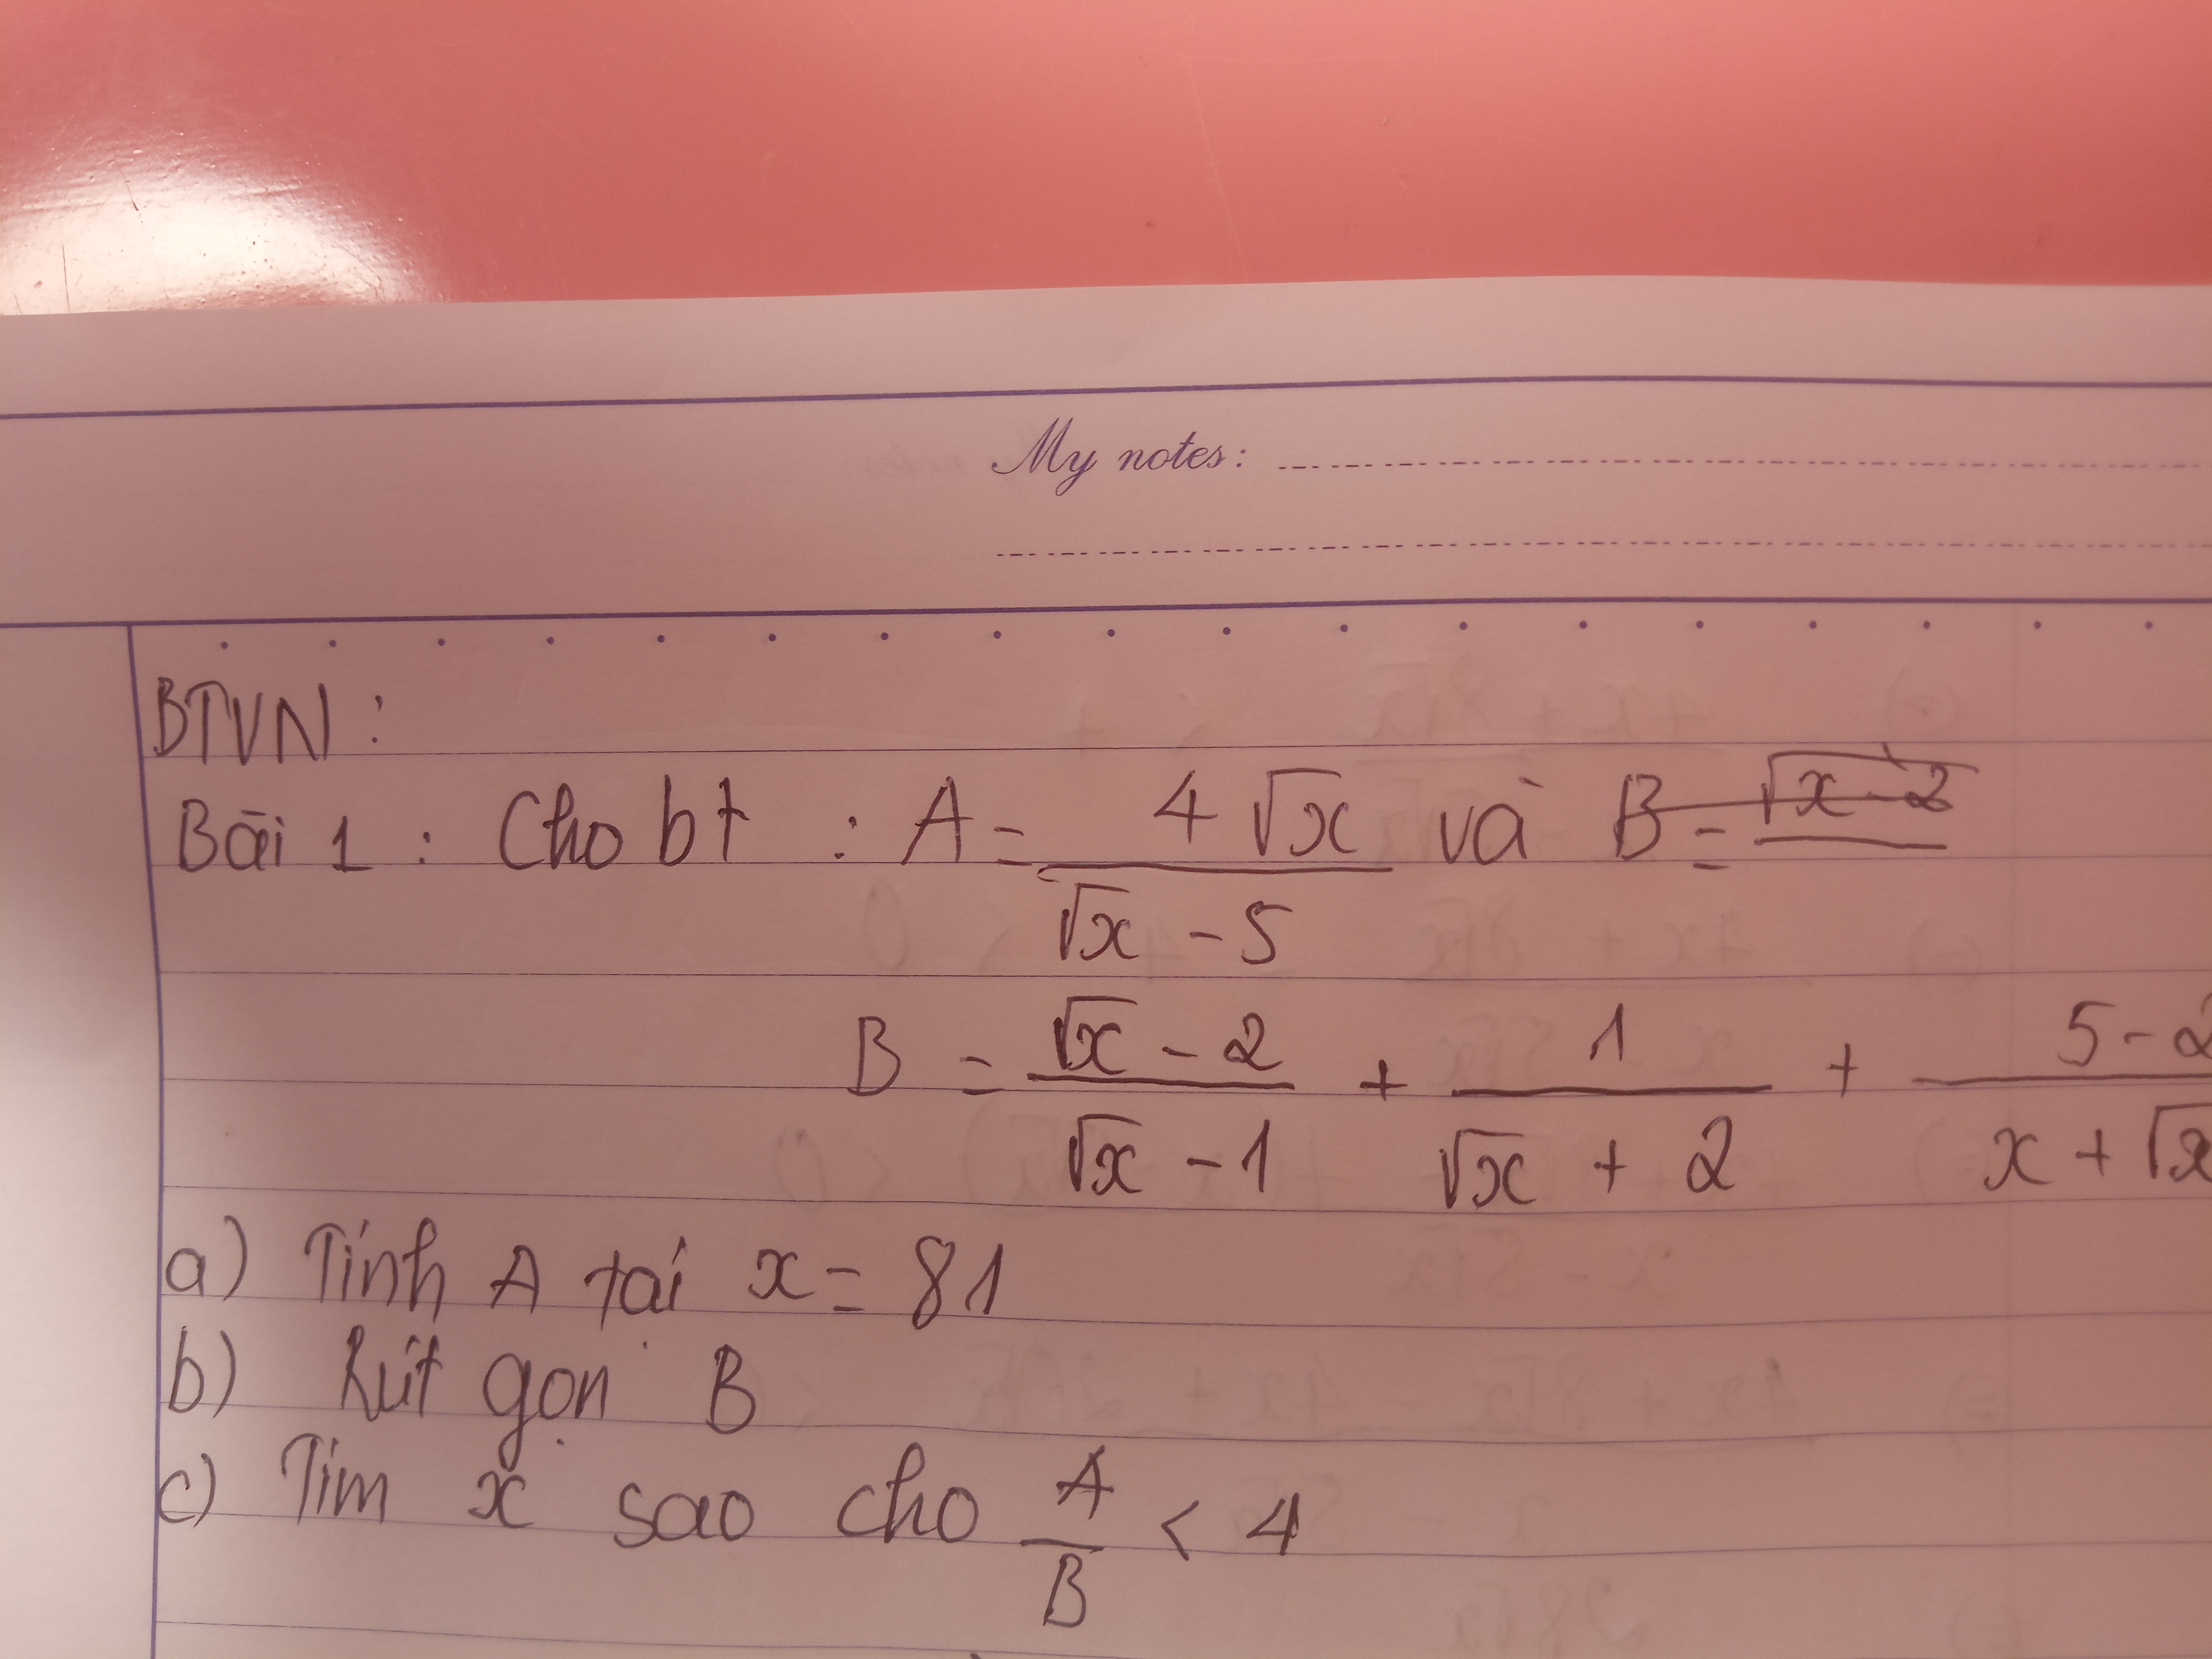 My notes:
BTVN:
Bài 1 : Cho bt : A = 4√x / √x - 5 và B = √x - 2
B = √x - 2 / √x - 1 + 1 / √x + 2 + 5 - 2 / x + √x
a) Tính A tại x = 81
b) Rút gọn B
c) Tìm x sao cho A / B < 4